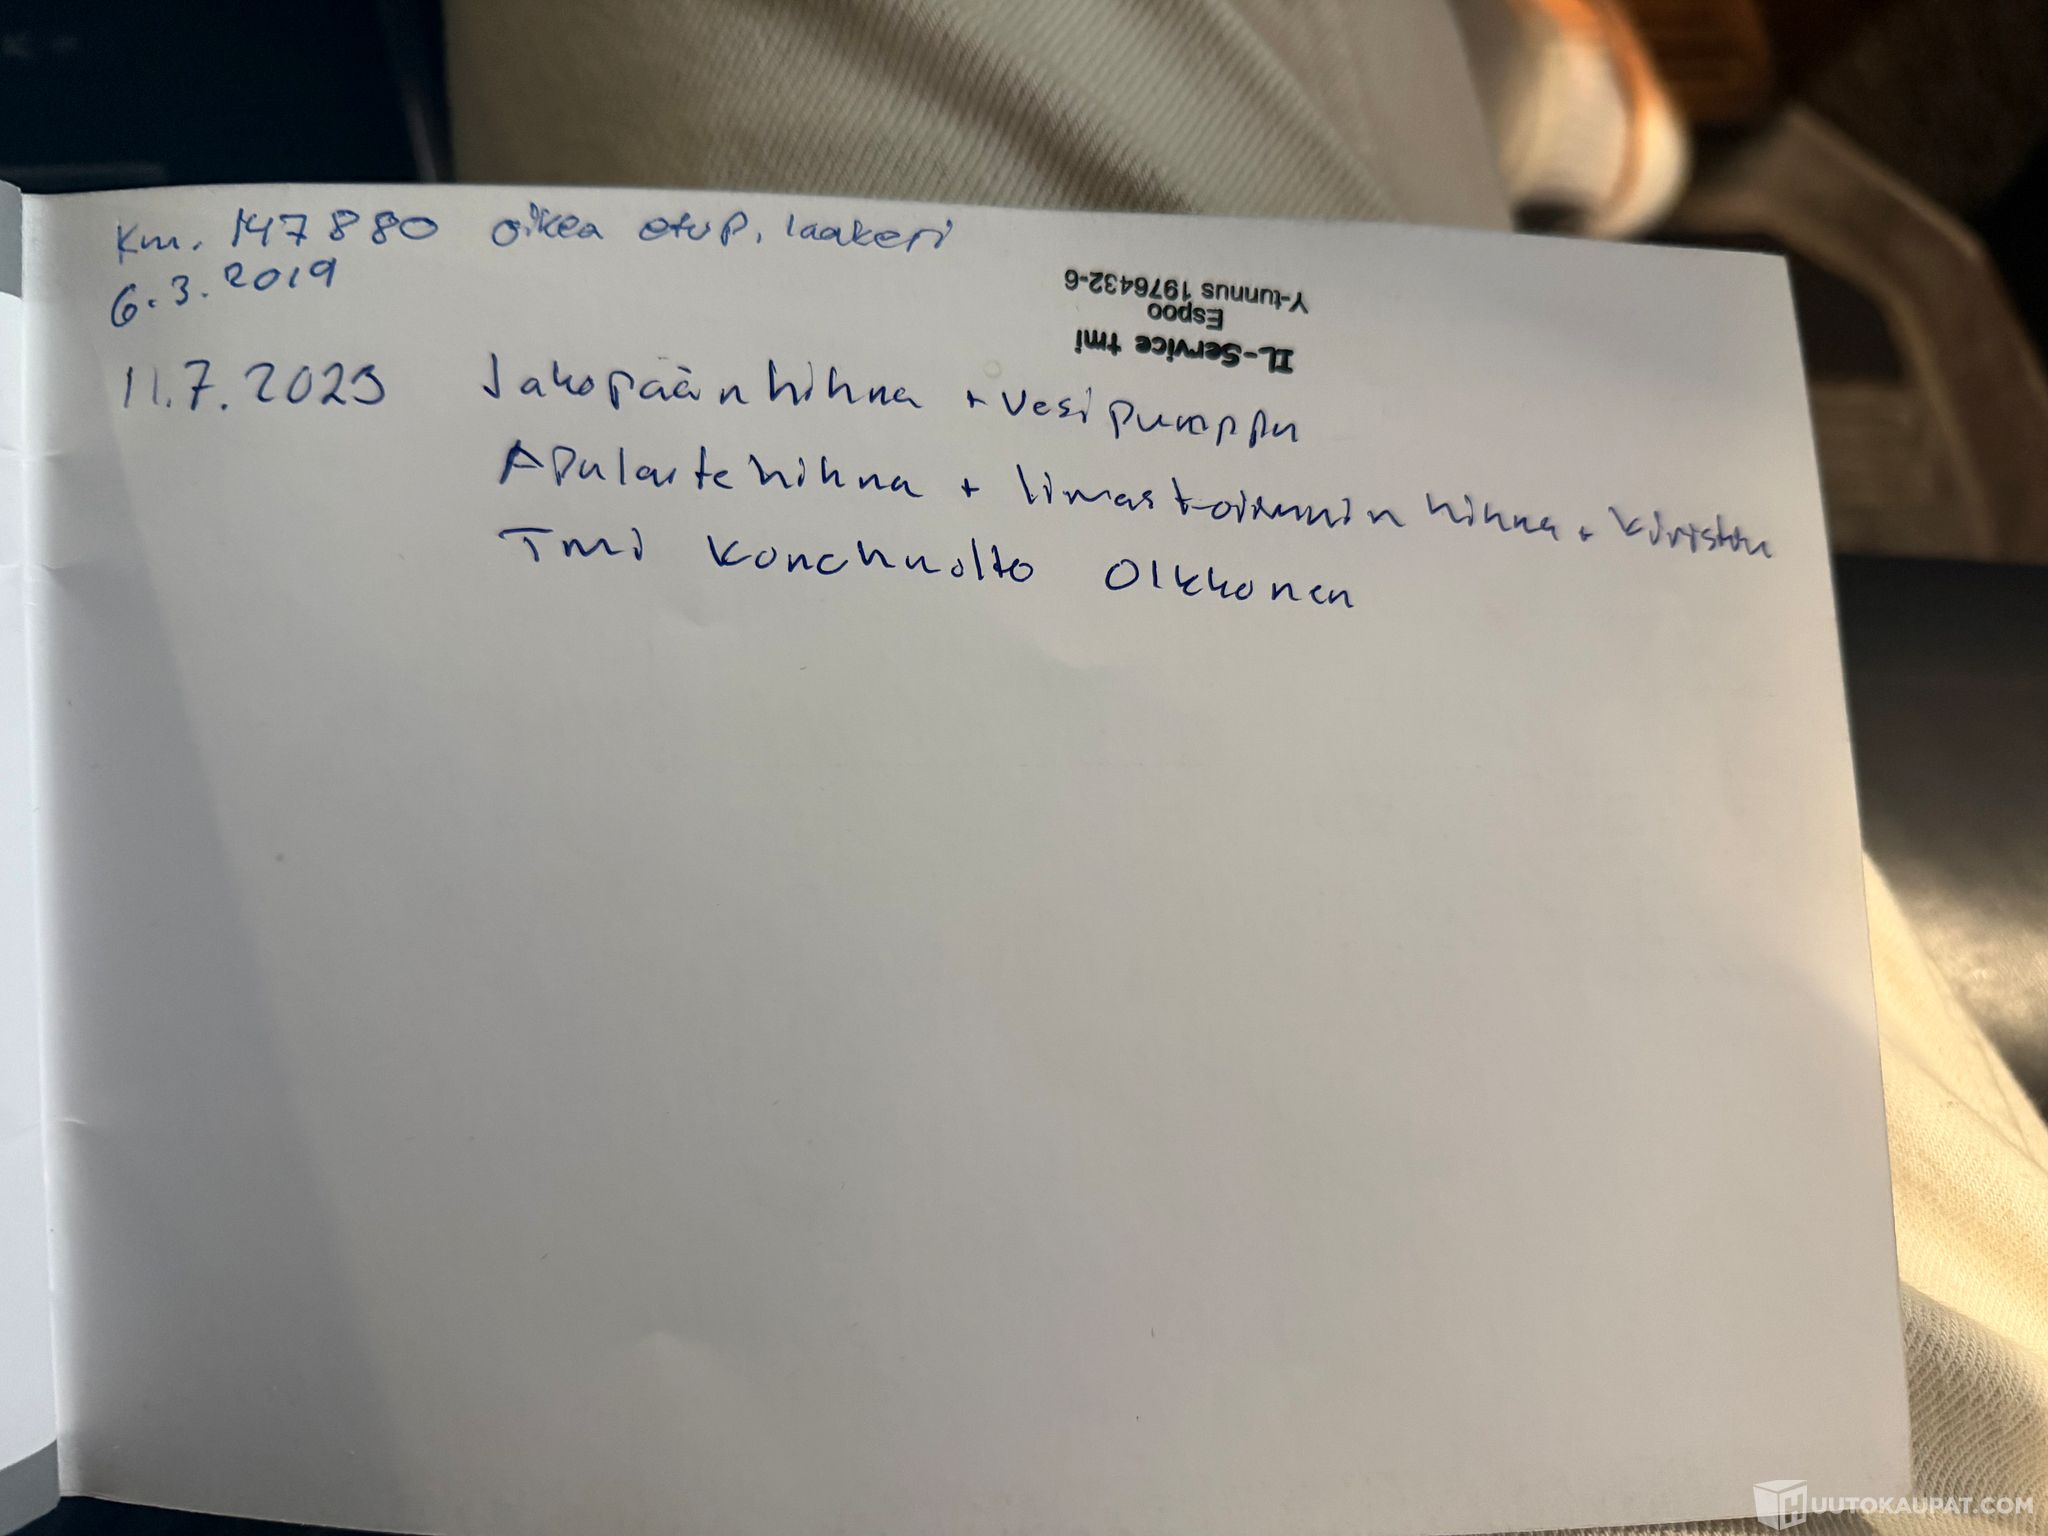 Km. 147880 oikea etup. laakeri
6.3.2019
IL-Service tmi
Espoo
Y-tunnus 1976432-6
11.7.2023 Jakopäänhihna + vesipumppu
Apulaitehihna + ilmastoinnin hihna + kiristin
Tmi Konehuolto Olkkonen
HUUTOKAUPAT.COM